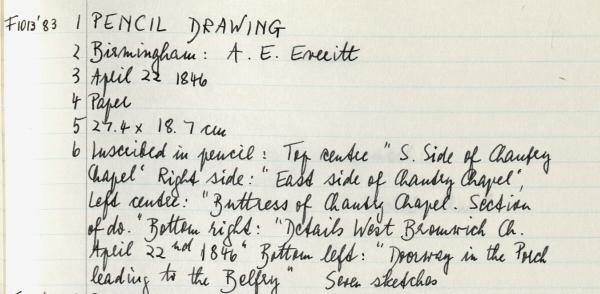 F1013'83 1 PENCIL DRAWING
2 Birmingham: A. E. Everitt
3 April 22 1846
4 Paper
5 27.4 x 18.7 cm
6 Inscribed in pencil: Top center "S. Side of Chantry
Chapel" Right side: "East side of Chantry Chapel",
Left center: "Buttress of Chantry Chapel. Section
of do." Bottom right: "Details West Bromwich Ch.
April 22nd 1846" Bottom left: "Doorway in the Porch
leading to the Belfry" Seven sketches